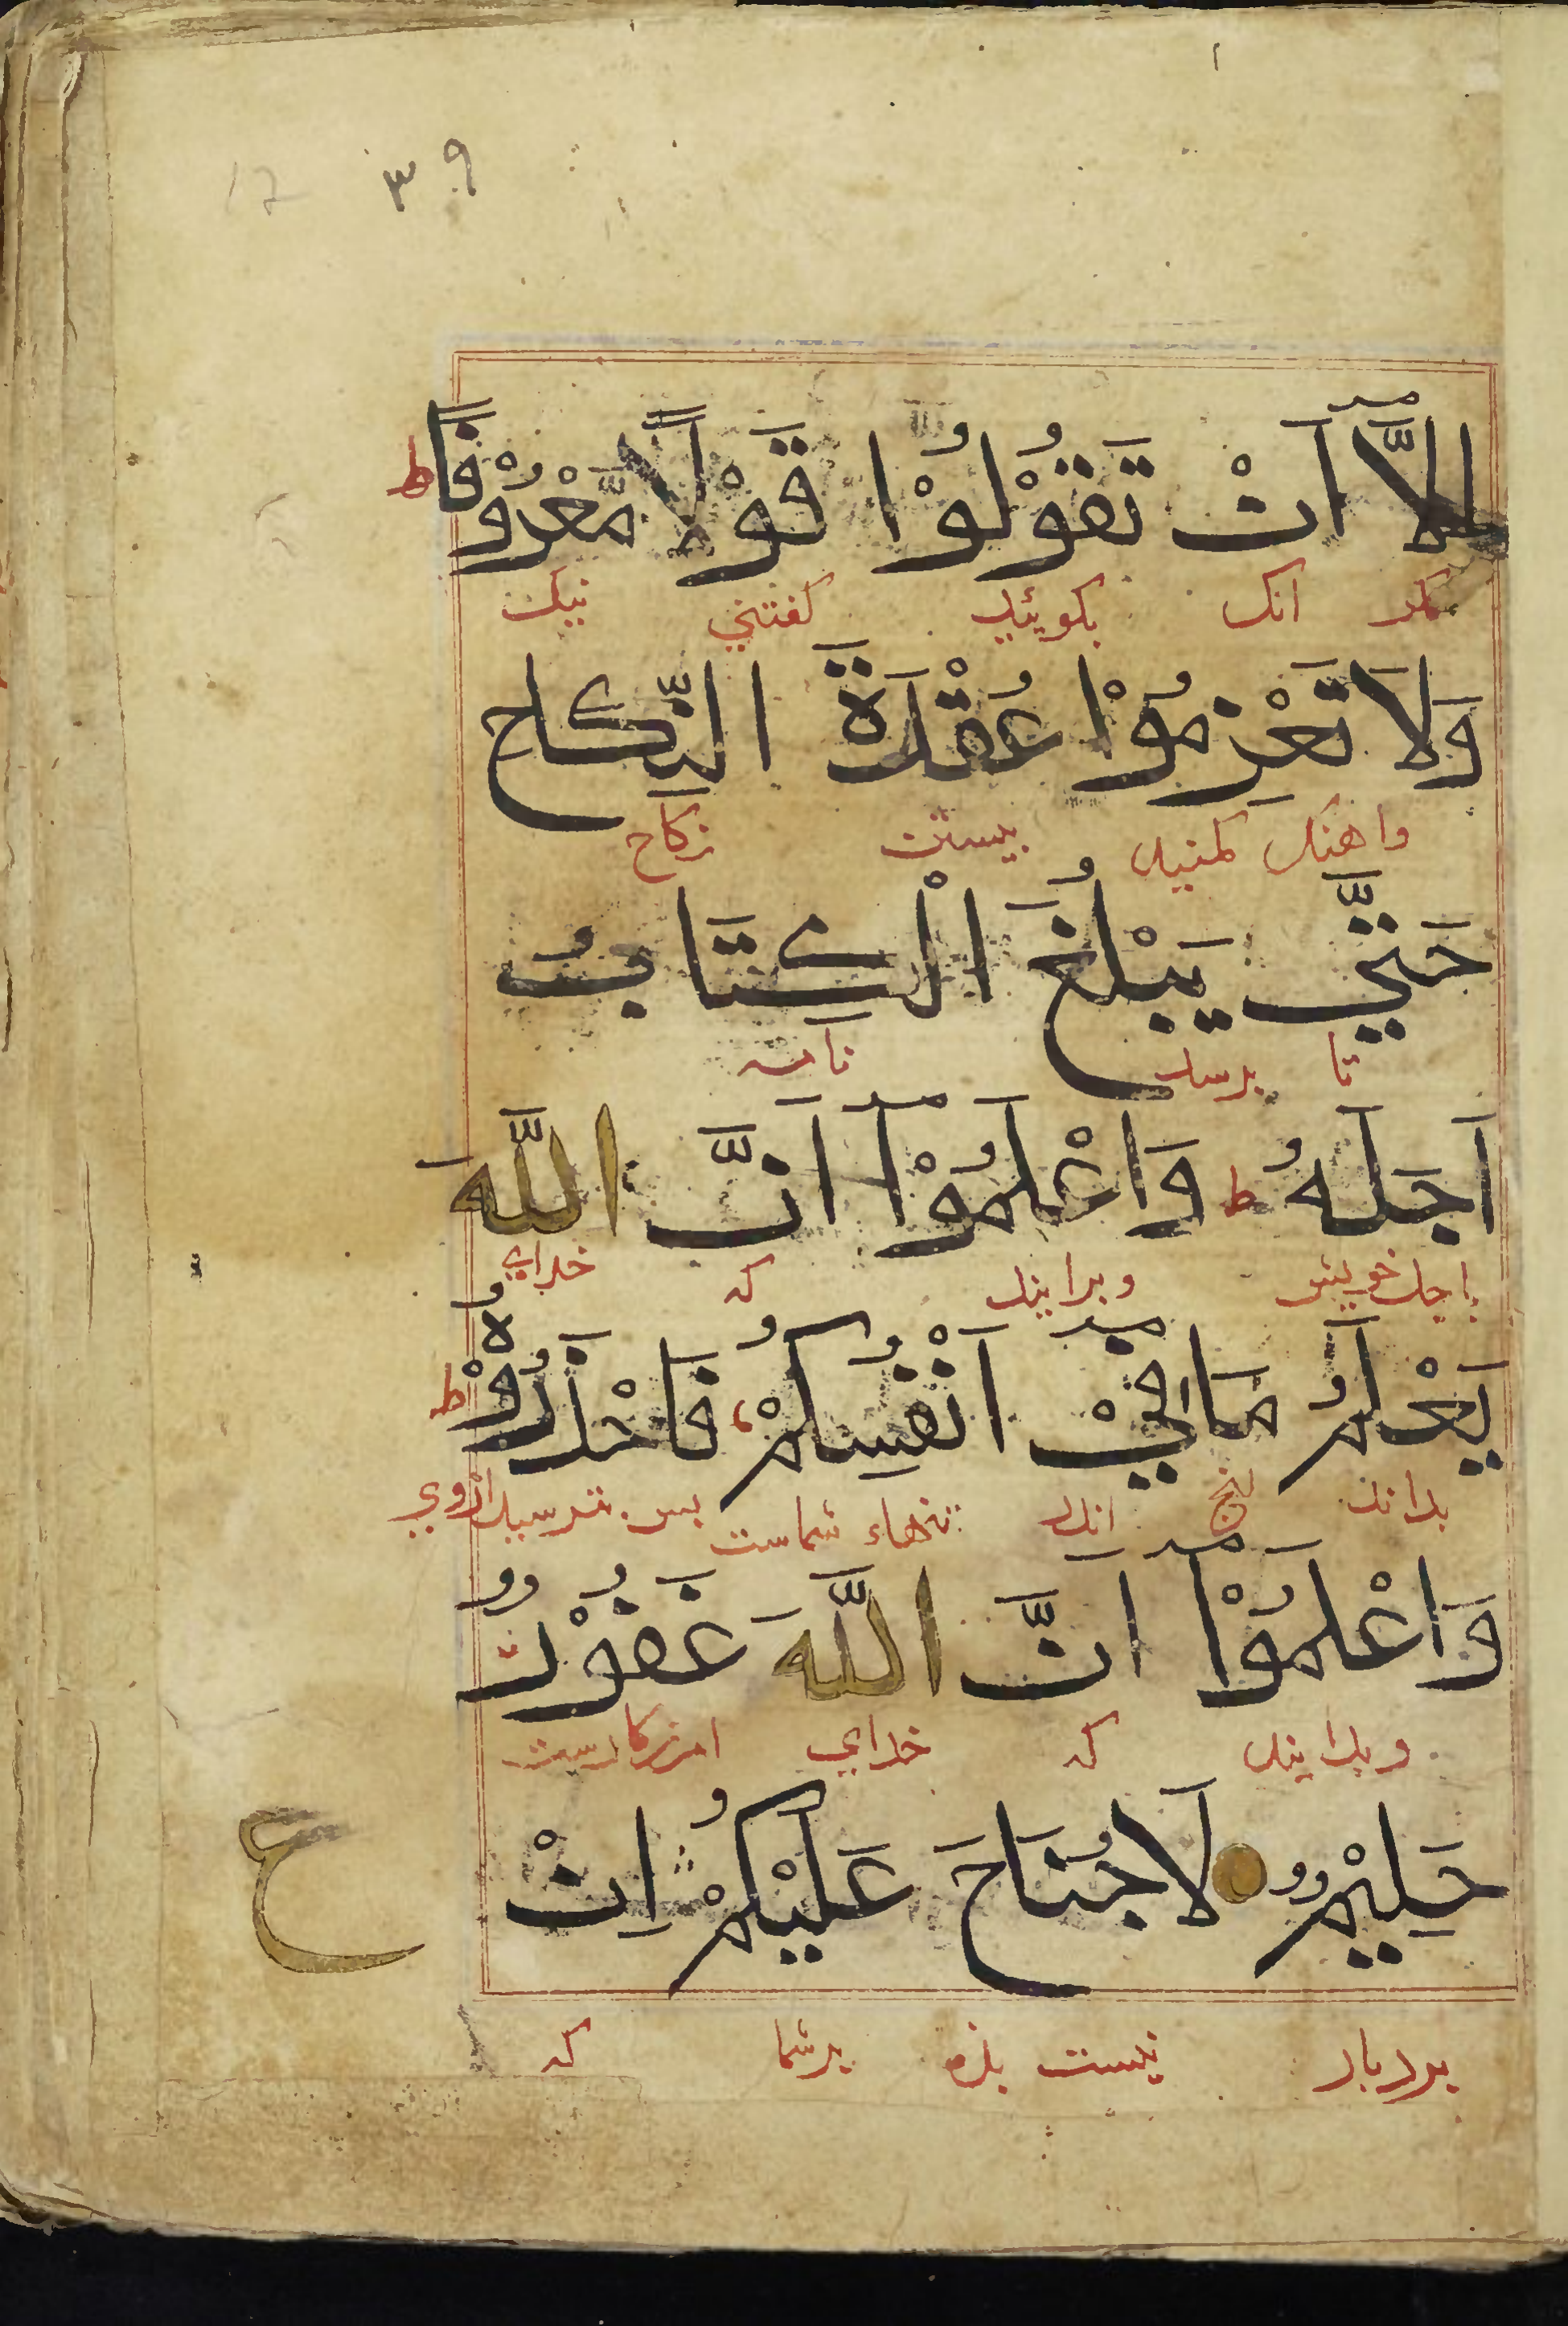 ٣٩
اِلَّا اَنْ تَقُوْلُوْا قَوْلًا مَّعْرُوْفًا ط
مكر انك بكوئيد كفتني نيك
وَلَا تَعْزِمُوْا عُقْدَةَ النِّكَاحِ
واهنك مكنيد ببستن نكاح
حَتّٰي يَبْلُغَ الْكِتَابُ
تا برسد نامه
اَجَلَهُ ط وَاعْلَمُوْا اَنَّ اللّٰهَ
باجل خويش وبدانيد كه خداي
يَعْلَمُ مَا فِيْ اَنْفُسِكُمْ فَاحْذَرُوْهُ ط
بداند انج اندر تنهاء شماست بس بترسيد ازوي
وَاعْلَمُوْا اَنَّ اللّٰهَ غَفُوْرٌ
وبدانيد كه خداي امرزكارست
حَلِيْمٌ لَا جُنَاحَ عَلَيْكُمْ اِنْ
ع
بردبار نيست بزه برشما كه